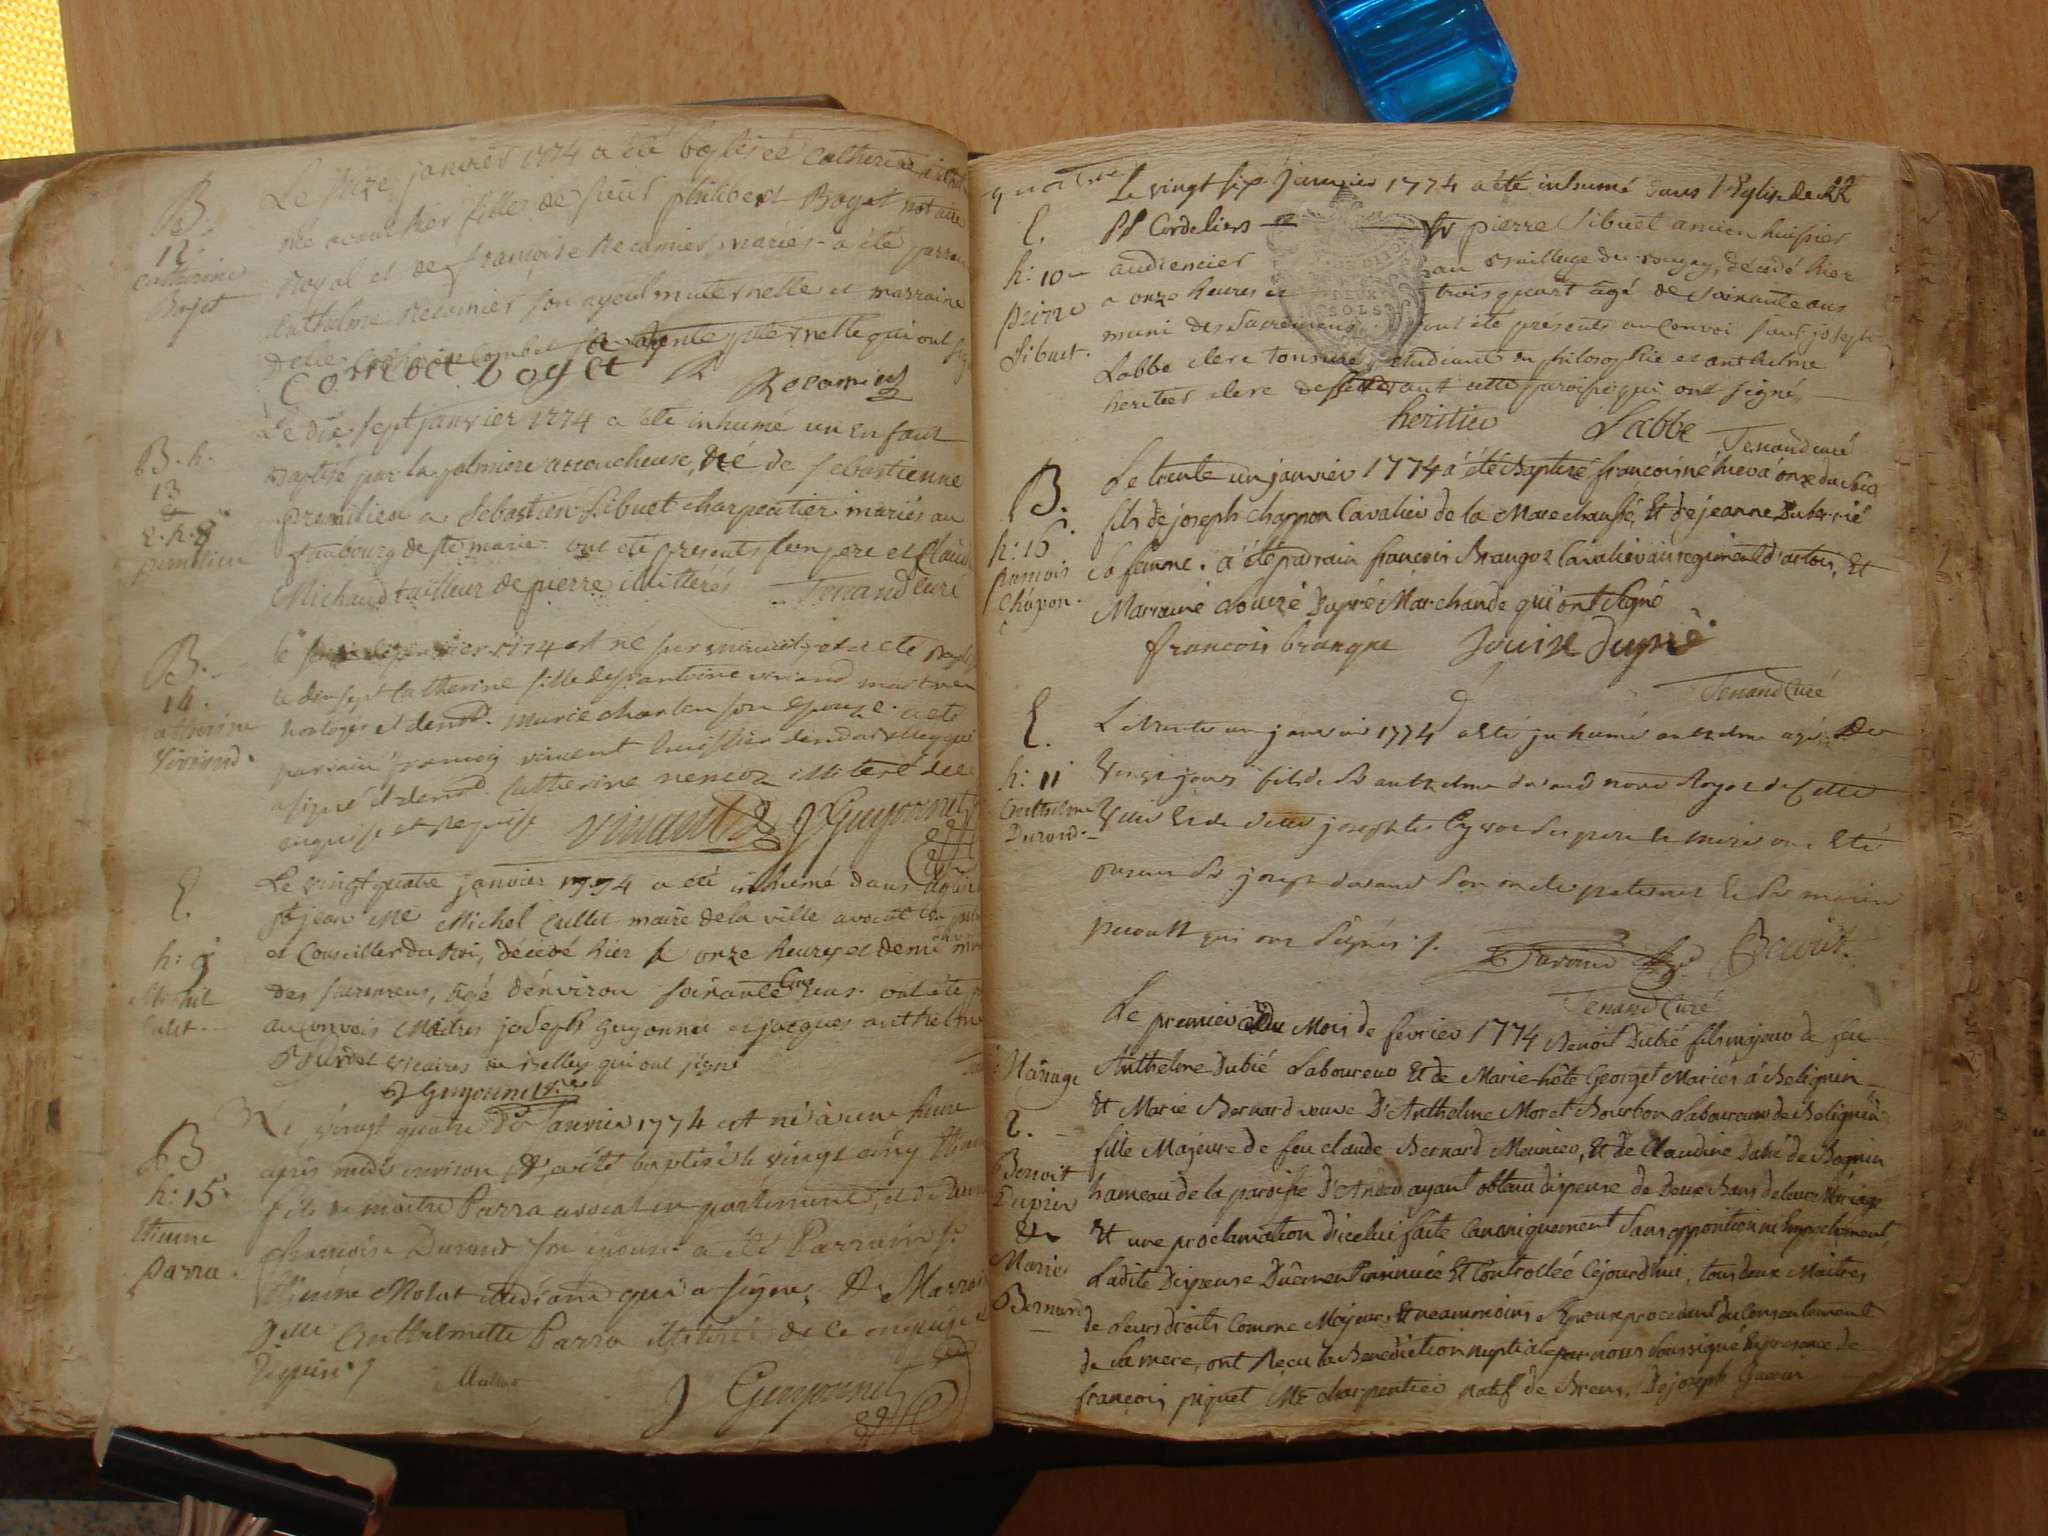 B.
12.
Catherine
Boget
Le seize janvier 1774 a été baptisée Catherine
née avant hier fille de sieur philibert Boget notaire
Royal et de françoise Recamier mariés a été parrain
Anthelme Recamier son ayeul maternelle et marraine
Delle Catherine Combet sa tante paternelle qui ont
Combet boget Recamier
B. h.
13
&
E. h. 8
premilieu
Le dix sept janvier 1774 a été inhumé un enfant
Baptisé par la palmiere accoucheuse, né de sebastienne
premilieu a Sebastien Sibuet charpentier mariés au
faubourg de ste marie ont été presents son pere et Claude
Michaud tailleur de pierre illitérés Tenand curé
B.
14.
Catherine
Vivand.
janvier 1774 est né sur minuit, et a été
le dix sept Catherine fille de sr antoine vivand maitre
horloger et de marie charlen son Epouse a été
parrain françois vinent huissier qui
a signé et Catherine illiteré de ce
enquise et requise vinent J Guyonnet
E.
h: 9
Michel
Cullet.
Le vingt quatre janvier 1774 a été inhumé dans
st jean Me Michel Cullet maire de la ville avocat en
et Conseiller du Roi, décédé hier a onze heures et demi
des sacremens, agé d'environ soixante cinq ans. ont été
au convois Maitres joseph Guyonnet et jacques anthelme
vicaires de Belley qui ont signé
Guyonnet
B
h: 15.
Etienne
Parra.
Le vingt quatre de Janvier 1774 est né à une heure
après midi environ & a été baptisé le vingt cinq Etienne
fils de maitre Parra avocat en parlement, et de Dame
françoise Durand son epouse a été Parrain sr
Etienne Molat etudiant qui a signé, & Marraine
Delle Anthelmette Parra illitéré de ce enquise
requise
Mollat
J Guyonnet
quatre
E.
h: 10
pierre
Sibuet.
Le vingt six janvier 1774 a été inhumé dans l'Eglise de RR
PP Cordeliers sr pierre Sibuet ancien huissier
audiencier au Bailliage du Bugey, décédé hier
a onze heures et trois quart agé de soixante ans
muni des Sacremens. ont été présents au convoi sieur joseph
Labbe clerc tonsuré, etudiant en philosophie et anthelme
heritier clerc desservant cette paroisse qui ont signé
heritier Labbe Tenand curé
B.
h: 16
francois
Chapon.
Le trente un janvier 1774 a été Baptisé francois né hier à onze du soir
fils de joseph Chappon Cavalier de la Marechaussé, Et de jeanne Dubernié
sa femme. a été parrain francois Brangoz Cavalier au regiment d'artois, Et
Marraine Louise Dupré Marchande qui ont Signé
francois brangne Louise Dupré
Tenand Curé
E.
h: 11
Anthelme
Durand.
Le trente un janvier 1774 a été inhumé anthelme agé de
Vingt jours fils de Sr anthelme durand Royal de Cette
Ville Et de les pere et mere ont été
présens Sr joseph durand son oncle paternel Et Sr
peroult qui ont Signés ./.
Durand
Tenand Curé
Mariage
2.
Benoit
Duprer
&
Marie
Bernard
Le premier du Mois de fevrier 1774 Benoit Dubié fils majeur de feu
Anthelme Dubié Laboureur Et de Marie hôte Georget Mariés à Belignin
Et Marie Bernard veuve D'Anthelme Moret Bourbon Laboureur de Belignin
fille Majeure de feu Claude Bernard Meunier, Et de Claudine Dubié de Bognin
hameau de la paroisse D'Andert ayant obtenu dispense de Deux Bans de leur Mariage
Et une proclamation d'icelui faite Canoniquement Sans opposition ni Empechement,
Ladite Dispense Dûement insinuée Et Controllée cejourd'hui, tous deux Maitres
de leurs droits Comme Majeurs, Et neanmoins l'Epoux procedant du Consentement
de sa mere, ont Recu la Benediction nuptiale par nous Soussigné En presence de
francois piquet Me charpentier natif de Brens, De joseph